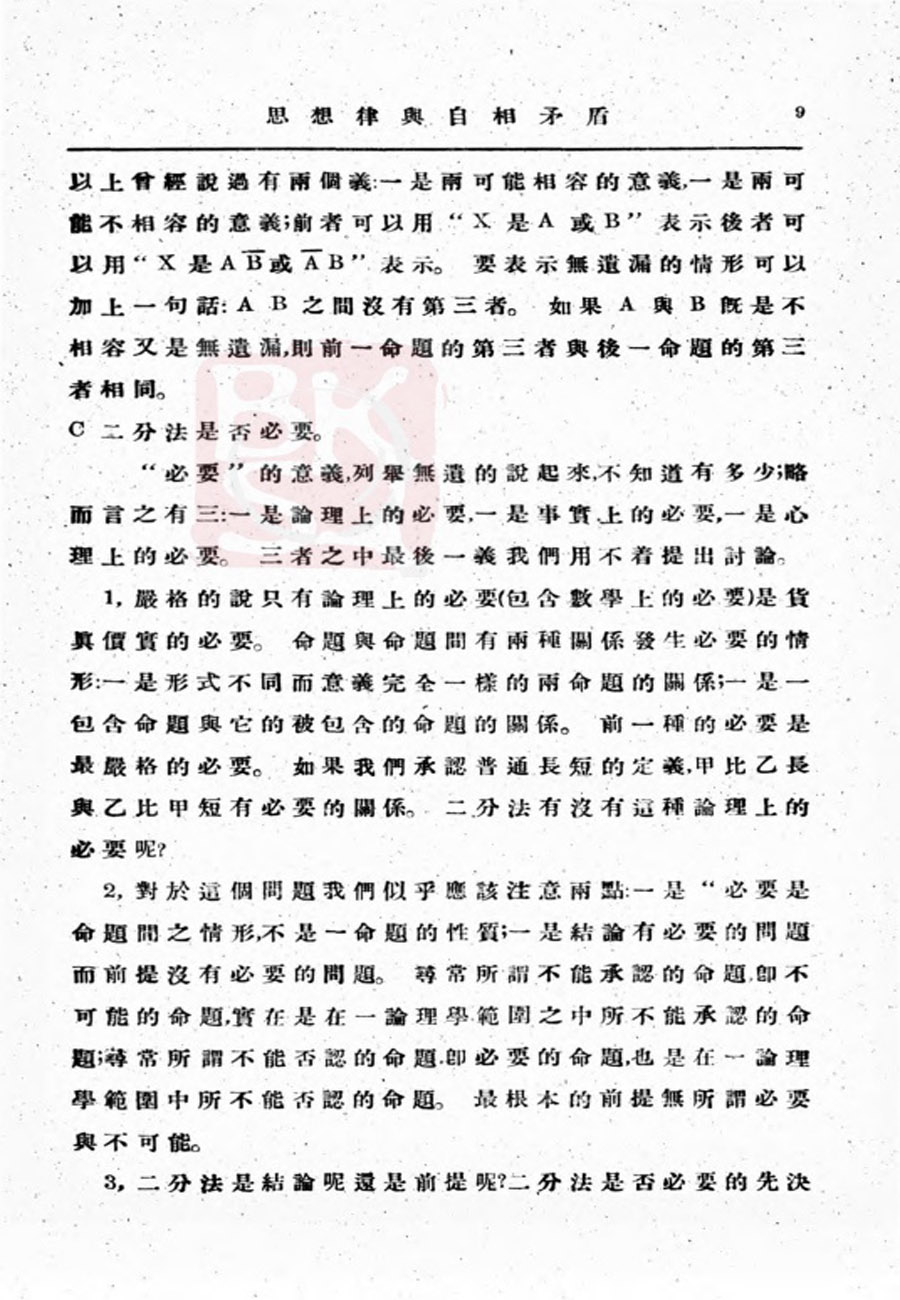 思想律與自相矛盾 9
以上曾經說過有兩個義:一是兩可能相容的意義,一是兩可
能不相容的意義;前者可以用“X 是 A 或 B” 表示後者可
以用“X 是 A B̅ 或 A̅ B” 表示。 要表示無遺漏的情形可以
加上一句話: A B 之間沒有第三者。 如果 A 與 B 旣是不
相容又是無遺漏,則前一命題的第三者與後一命題的第三
者相同。
C 二分法是否必要。
“必要”的意義,列舉無遺的說起來,不知道有多少;略
而言之有三:一是論理上的必要,一是事實上的必要,一是心
理上的必要。 三者之中最後一義我們用不着提出討論。
1, 嚴格的說只有論理上的必要(包含數學上的必要)是貨
眞價實的必要。 命題與命題間有兩種關係發生必要的情
形:一是形式不同而意義完全一樣的兩命題的關係;一是一
包含命題與它的被包含的命題的關係。 前一種的必要是
最嚴格的必要。 如果我們承認普通長短的定義,甲比乙長
與乙比甲短有必要的關係。 二分法有沒有這種論理上的
必要呢?
2, 對於這個問題我們似乎應該注意兩點:一是“必要是
命題間之情形,不是一命題的性質;一是結論有必要的問題
而前提沒有必要的問題。 尋常所謂不能承認的命題,卽不
可能的命題,實在是在一論理學範圍之中所不能承認的命
題;尋常所謂不能否認的命題,卽必要的命題,也是在一論理
學範圍中所不能否認的命題。 最根本的前提無所謂必要
與不可能。
3, 二分法是結論呢還是前提呢?二分法是否必要的先決